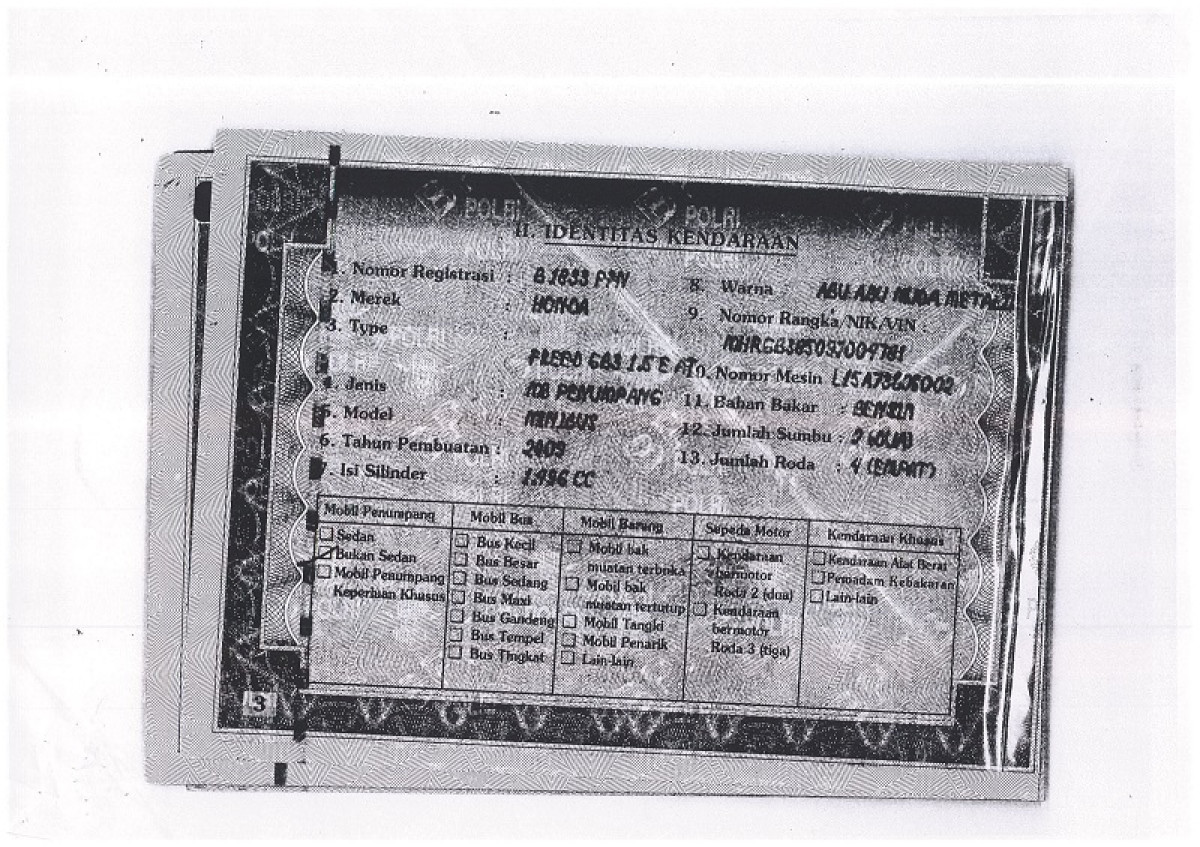 POLRI POLRI
II. IDENTITAS KENDARAAN
1. Nomor Registrasi :
2. Merek : HONDA
3. Type :
4. Janis : MB PENUMPANG
5. Model : MINIBUS
6. Tahun Pembuatan : 2009
7. Isi Silinder : 1.496 CC
8. Warna : ABU ABU MUDA
9. Nomor Rangka/NIK/VIN :
10. Nomor Mesin
11. Bahan Bakar : BENSIN
12. Jumlah Sumbu : 2 (DUA)
13. Jumlah Roda : 4 (EMPAT)
Mobil Penumpang
Sedan
Bukan Sedan
Mobil Penumpang
Keperluan Khusus
Mobil Bus
Bus Kecil
Bus Besar
Bus Sedang
Bus Maxi
Bus Gandeng
Bus Tempel
Bus Tingkat
Mobil Barang
Mobil bak
muatan terbuka
Mobil bak
muatan tertutup
Mobil Tangki
Mobil Penarik
Lain-lain
Sepeda Motor
Kendaraan
bermotor
Roda 2 (dua)
Kendaraan
bermotor
Roda 3 (tiga)
Kendaraan Khusus
Kendaraan Alat Berat
Pemadam Kebakaran
Lain-lain
3